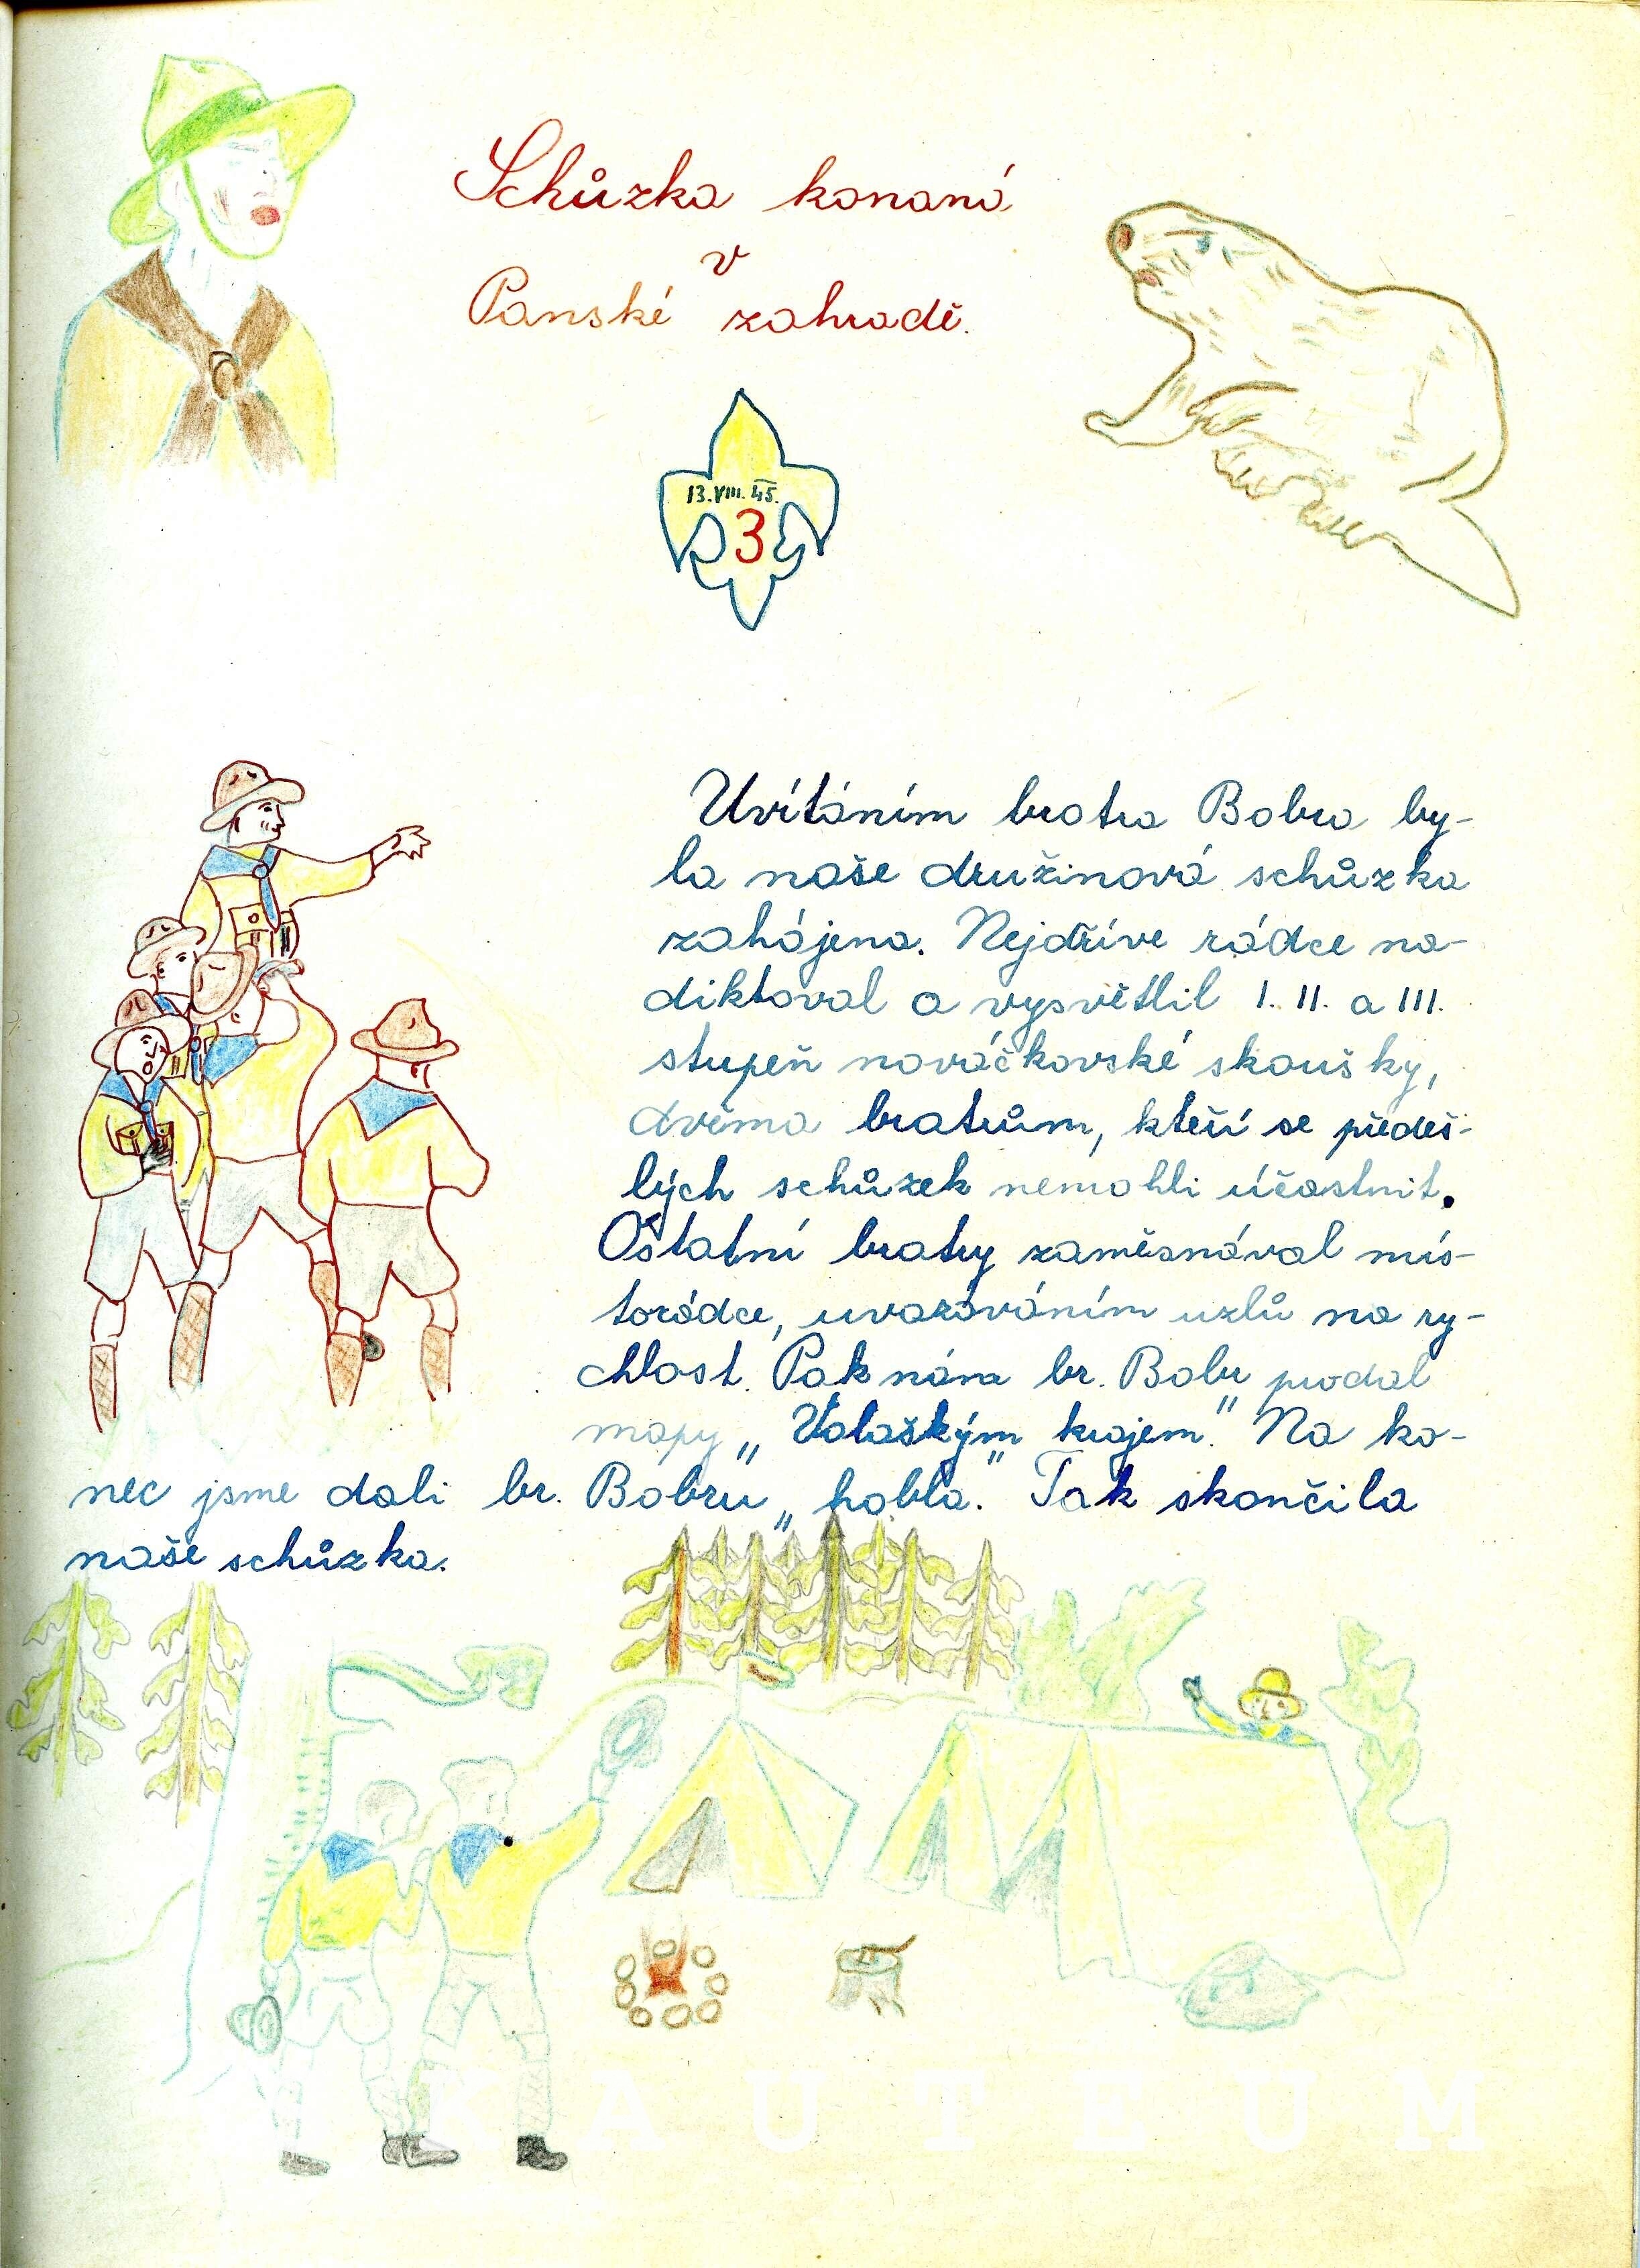 Schůzka konaná
v
Panské zahradě.
13.VIII.45.
3
Uvítáním bratra Bobra by-
la naše družinová schůzka
zahájena. Nejdříve rádce na-
diktoval a vysvětlil I. II. a III.
stupeň nováčkovské skoušky,
dvěma bratrům, kteří se předeš-
lých schůzek nemohli účastnit.
Ostatní bratry zaměsnával mís-
torádce, uvazováním uzlů na ry-
chlost. Pak nám br. Bobr prodal
mapy „Valaškým krajem." Na ko-
nec jsme dali br. Bobru „hobla." Tak skončila
naše schůzka.
KAUTEUM